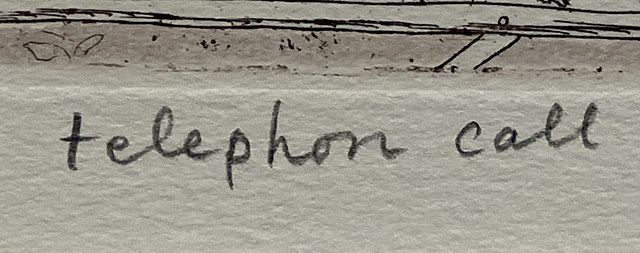 telephon call